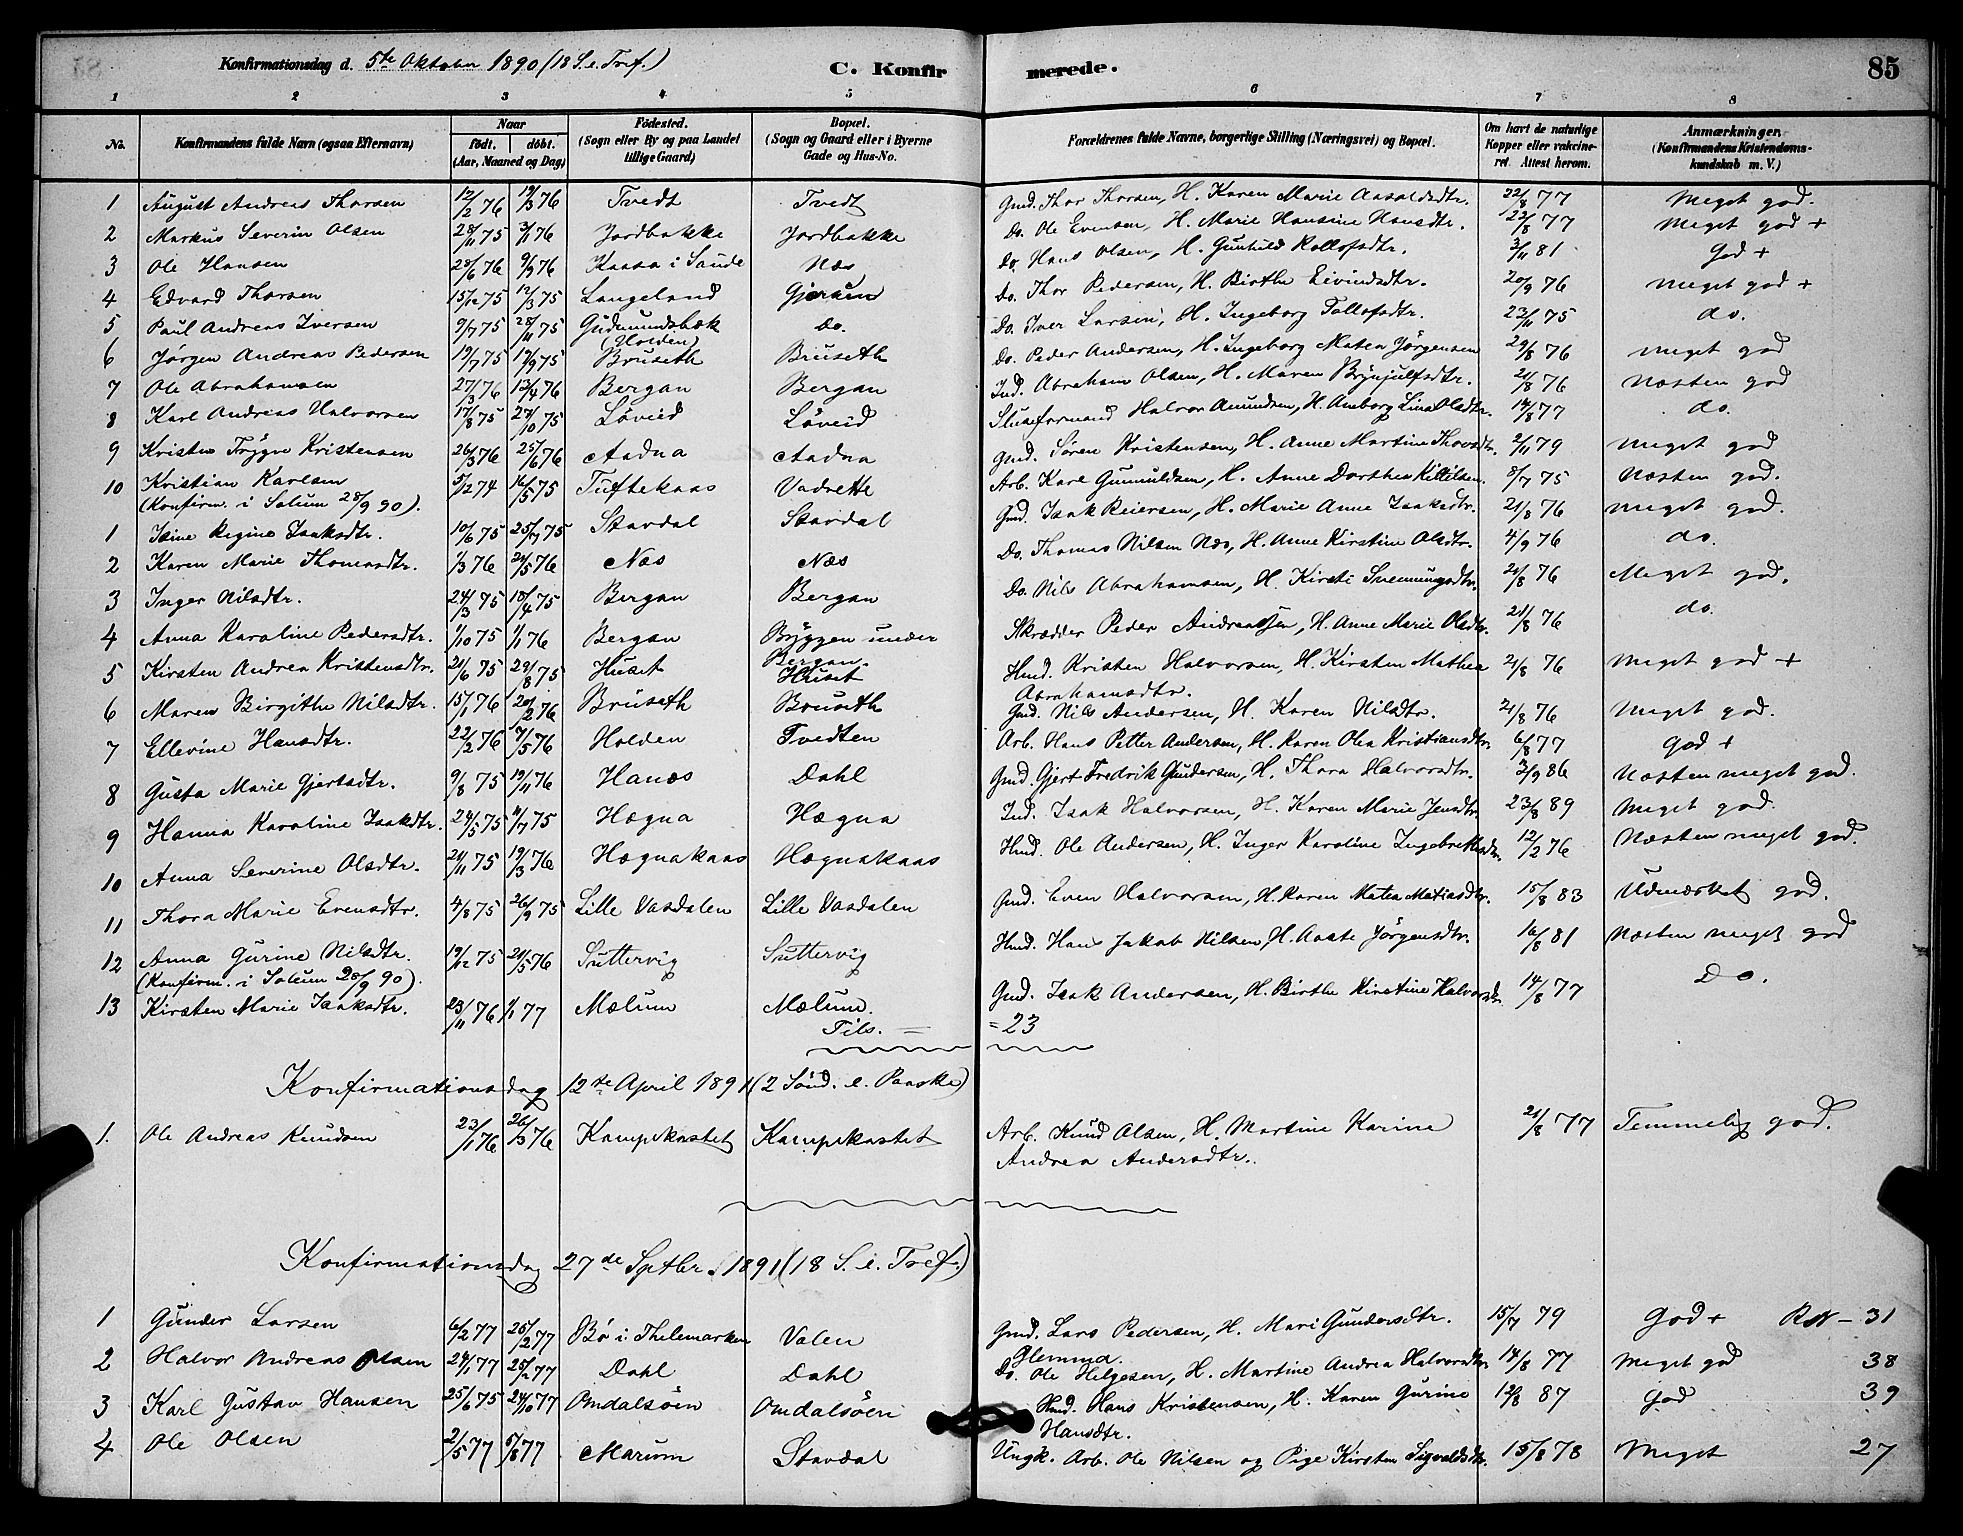 Konfirmationsdag d. 5te Oktober 1890 (18 S. e. Tref.) C. Konfirmerede. 85
1 2 3 4 5 6 7 8
No. Konfirmandens fulde Navn (ogsaa Efternavn) Naar födt. döbt. (Aar, Maaned og Dag) Födested. (Sogn eller By og paa Landet tillige Gaard) Bopæl. (Sogn og Gaard eller i Byerne Gade og Hus-No. Forældrenes fulde Navne, borgerlige Stilling (Næringsvei) og Bopæl. Om havt de naturlige Kopper eller vakcineret. Attest herom. Anmærkninger. (Konfirmandens Kristendomskundskab m. V.)
1 August Andreas Thorsen 12/2 76 19/3 76 Tvedt Tvedt Gmd. Thor Thorsen, H. Karen Marie 22/8 77 Meget god.
2 Markus Severin Olsen 28/11 75 2/1 76 Jordbakke Jordbakke Do. Ole Evensen, H. Marie Hansine Hansdtr. 22/8 77 Meget god +
3 Ole Hansen 28/6 76 9/9 76 Kaasa i Saude Næs Do. Hans Olsen, H. Gunhild Rollofsdtr. 3/11 81 God +
4 Edvard Thorsen 15/12 75 12/3 75 Langeland Gjerken Do. Thor Pedersen, H. Birthe Eivindsdtr. 20/9 76 Meget god +
5 Paul Andreas Iversen 9/7 75 28/11 75 Gudmundsbæk (Holden) Do. Do. Iver Larsen, H. Ingeborg Tollofsdtr. 23/11 75 do.
6 Jørgen Andreas Pedersen 19/7 75 19/9 75 Bruseth Bruseth Do. Peder Andersen, H. Ingeborg Matea Jörgensen 29/8 76 meget god
7 Ole Abrahamsen 27/3 76 13/4 76 Bergan Bergan Ind. Abraham Olsen, H. Maren Brynjulfsdtr. 21/8 76 Næsten god
8 Karl Andreas Halvorsen 17/8 75 27/10 75 Løveid Løveid Sluseformand Halvor Amundsen, H. Amborg Lina Olsdtr. 14/8 77 do.
9 Kristen Trÿgve Kristensen 26/3 76 25/6 76 Aadna Aadna Gmd. Søren Kristensen, H. Anne Martine Thovsdtr. 2/11 79 meget god
10 Kristian Karlsen 5/12 74 16/5 75 Tuftekaas Vadrette Arb. Karl Gunnuldsen, H. Anne Dorthea Killilsen. 8/7 75 Næsten god.
(Konfirm. i Solum 28/9 90).
1 Isine Regine Isaksdtr. 10/6 75 25/7 75 Stavdal Stavdal Gmd. Isak Reiersen, H. Marie Anne Isaksdtr. 21/8 76 meget god.
2 Karen Marie Thomasdtr. 1/3 76 21/5 76 Næs Næs Do. Thomas Nilsen Næs, H. Anne Kirstine Olsdtr. 4/9 76 do.
3 Inger Nilsdtr. 24/3 75 18/4 75 Bergan Bergan Do. Nils Abrahamsen, H. Kirsti Svenningsdtr. 21/8 76 Meget god.
4 Anna Karoline Pedersdtr. 1/10 75 1/1 76 Bergan Bryggen under Bergan. Skrædder Peder Andreassen, H. Anne Marie Olsdtr. 21/8 76 do.
5 Kirsten Andrea Kristensdtr. 21/6 75 29/8 75 Huset Huset Hmd. Kristen Halvorsen, H. Kirsten Mathea Abrahamsdtr. 21/8 76 Meget god +
6 Maren Birgithe Nilsdtr. 15/1 76 20/2 76 Bruseth Bruseth Gmd. Nils Andersen, H. Karen Nilsdtr. 21/8 76 Meget god.
7 Ellevine Hansdtr. 22/2 76 7/5 76 Holden Tvedten Arb. Hans Petter Andersen, H. Karen Olea Kristiansdtr. 6/8 77 God +
8 Gusta Marie Gjertsdtr. 9/8 75 19/11 76 Hanæs Dahl Gmd. Gjert Fredrik Gundersen, H. Thora Halvorsdtr. 3/9 86 Næsten meget god.
9 Hanna Karoline Isaksdtr. 24/5 75 11/7 75 Hægna Hægna Ind. Isak Halvorsen, H. Karen Marie Jensdtr. 23/8 89 Meget god.
10 Anna Severine Olsdtr. 21/11 75 19/3 76 Hægnakaas Hægnakaas Hmd. Ole Andersen, H. Inger Karoline Ingebretsdtr. 12/2 76 Næsten meget god.
11 Thora Marie Evensdtr. 4/8 75 26/9 75 Lille Vasdalen Lille Vasdalen Gmd. Even Halvorsen, H. Karen Matea Matiasdtr. 15/8 83 Udmærket god.
12 Anna Gurine Nilsdtr. 19/12 75 21/5 76 Suttervig Suttervig Hmd. Hans Jakob Nilsen, H. Aaste Jörgensdtr. 16/8 81 Næsten meget god
(Konfirm. i Solum 28/9 90).
13 Kirsten Marie Isaksdtr. 23/11 76 1/1 77 Mælum Mælum. Gmd. Isak Andersen, H. Birthe Kirstine Halvorsdtr. 14/8 77 Do.
Tils. = = 23
Konfirmationsdag 12te April 1891 (2 Sönd. e. Paaske)
1. Ole Andreas Knudsen 23/1 76 26/3 76 Kampekastet Kampekastet Arb. Knud Olsen, H. Martine Karine Andrea Andersdtr. 21/8 77 Temmelig god.
Konfirmationsdag 27de Sptbr. 1891 (18 S. e. Tref.)
1 Gunder Larsen 6/2 77 25/2 77 Bø i Thelemarken Valen Gmd. Lars Pedersen, H. Mari Gundersdtr. Glemma. 15/7 79 God + 31
2 Halvor Andreas Olsen 24/1 77 25/2 77 Dahl Dahl Do. Ole Helgesen, H. Martine Andrea Halvorsdtr. 14/8 77 meget god 38
3 Karl Gustav Hansen 25/6 75 24/10 77 Omdalsöen Omdalsöen Hmd. Hans Kristensen, H. Karen Gurine Hansdtr. 12/8 87 god 39
4 Ole Olsen 2/5 77 5/8 77 Marum Stavdal Ungk. Arb. Ole Nilsen og Pige Kirsten Sigvaldsdtr. 15/8 78 Meget 27